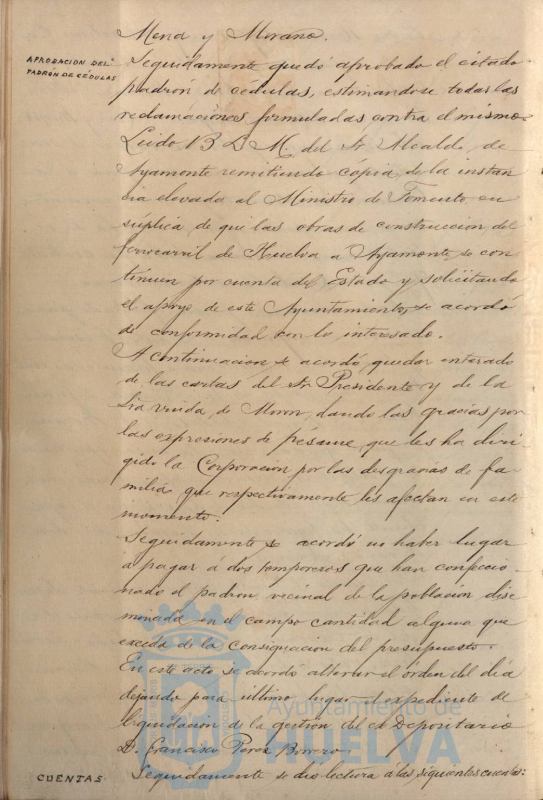 Mena y Morano.
APROBACION DEL
PADRÓN DE CÉDULAS
Seguidamente quedó aprobado el citado
padrón de cédulas, estimandose todas las
reclamaciones formuladas contra el mismo.
Leido B. L. M. del Sr. Alcalde de
Ayamonte remitiendo copia de la instan
cia elevada al Ministro de Fomento en
súplica de que las obras de construccion del
ferrocarril de Huelva a Ayamonte se con
tinuen por cuenta del Estado y solicitando
el apoyo de este Ayuntamiento, se acordó
de conformidad con lo interesado.
A continuacion se acordó quedar enterado
de las cartas del Sr. Presidente y de la
Sra viuda de Moron, dando las gracias por
las expresiones de pésame que les ha diri
gido la Corporacion por las desgracias de fa-
milia que respectivamente les afectan en este
momento.
Seguidamente se acordó no haber lugar
a pagar á dos temporeros que han confeccio
nado el padron vecinal de la poblacion dise
minada en el campo cantidad alguna que
exceda de la consignacion del presupuesto.
En este acto se acordó alterar el órden del dia
dejando para último lugar el expediente de
liquidacion de la gestion del ex Depositario
D. Francisco Perez Borrero.
CUENTAS
Seguidamente se dió lectura á las siguientes cuentas:
Ayuntamiento de
HUELVA